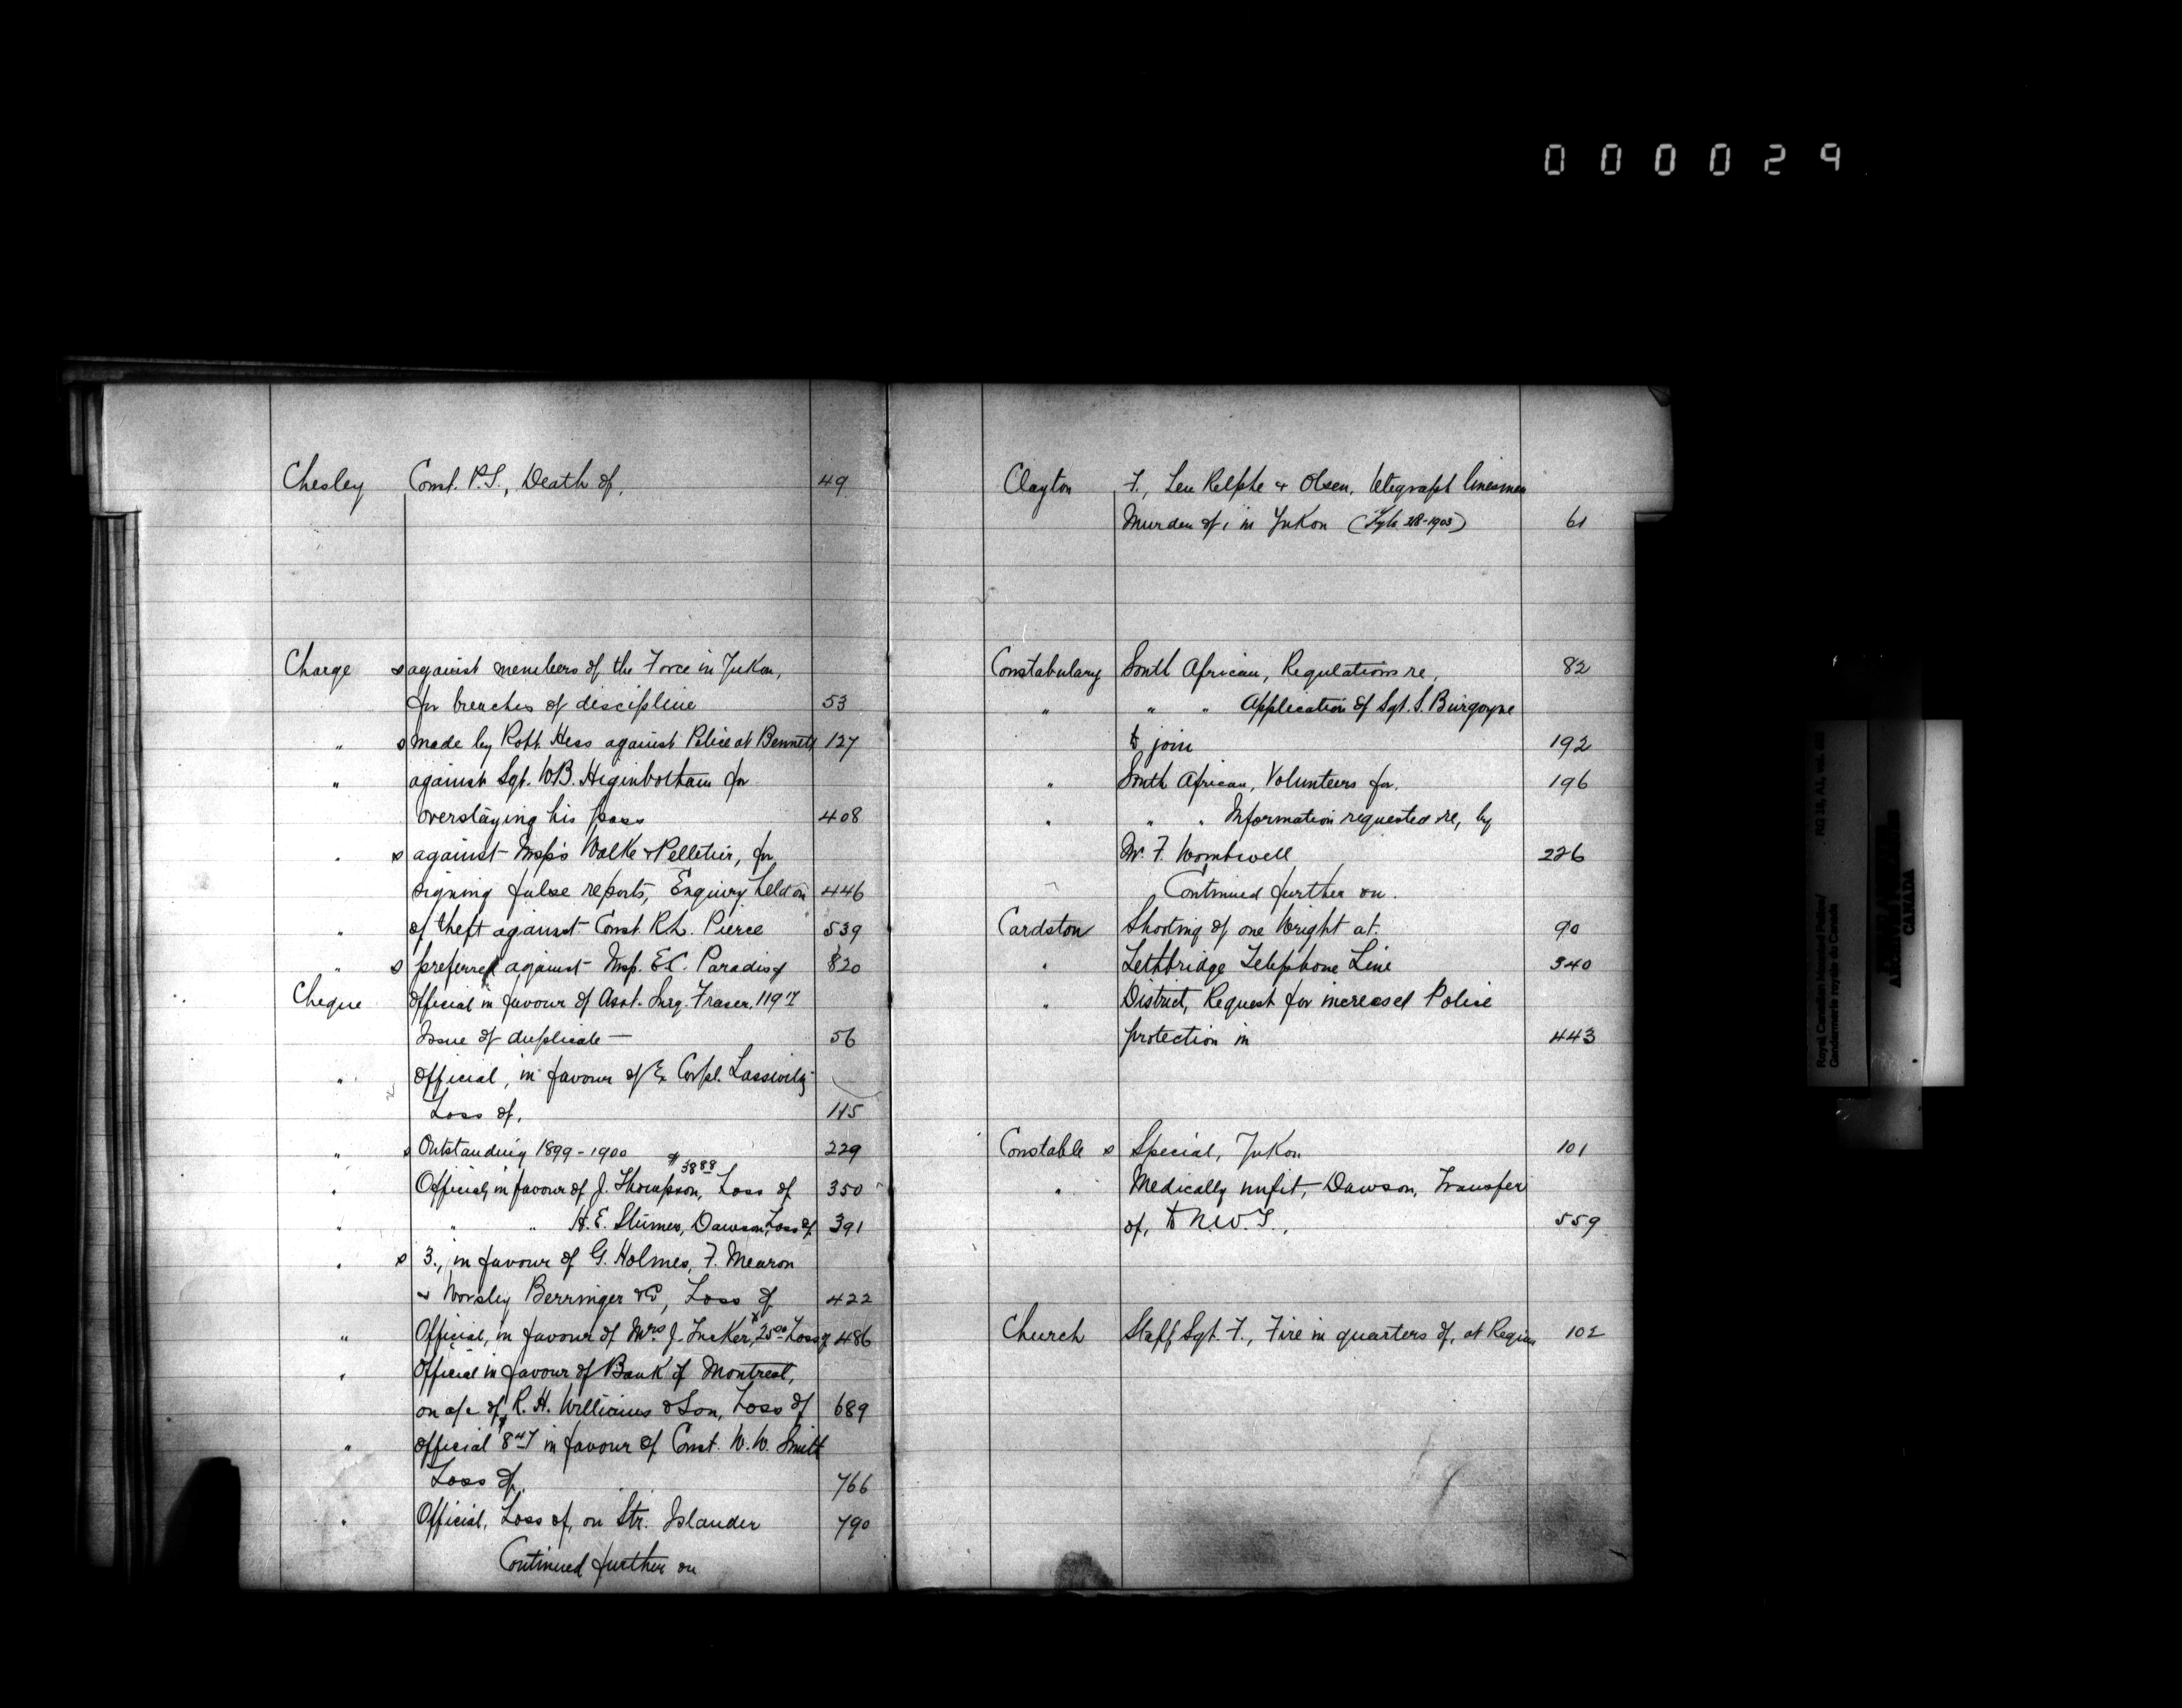 000029
Chesley Const. P.S., Death of, 49
Charge s against members of the Force in Yukon,
for breaches of discipline 53
" s made by Robt. Hess against Police at Bennett 127
" against Sgt. W.B. Higinbotham for
overstaying his pass 408
" s against Insps Walke & Pelletier, for
signing false reports, Enquiry held on 446
" of theft against Const. R.L. Pierce 539
" s preferred against Insp. E.C. Paradis 820
Cheque Official in favour of Asst. Surg. Fraser,
Issue of duplicate — 56
" Official, in favour of Ex Corpl.
Loss of, 115
" s Outstanding 1899-1900 229
" Official, in favour of J. Thompson, $38 88 Loss of 350
" " " H.E. Stumer, Dawson, Loss of 391
" s 3., in favour of G. Holmes, F. Mearon
& Worsley Berringer & Co, Loss of 422
" Official, in favour of Mrs J. Tucker, $25 00 Loss of 486
" Official in favour of Bank of Montreal,
on a/c of R.H. Williams & Son, Loss of 689
" Official $8 47 in favour of Const. W.W. Smith
Loss of, 766
" Official, Loss of, on Str. Islander 790
Continued further on
Clayton F., Leu Relphe & Olsen, telegraph linesmen
Murder of, in Yukon 61
Constabulary South African, Regulations re, 82
" " " Application of Sgt. S. Burgoyne
to join 192
" South African, Volunteers for, 196
" " " Information requested re, by
Mr. F. Wombwell 226
Continued further on.
Cardston Shooting of one Wright at. 90
" Lethbridge Telephone Line 340
" District, Request for increased Police
protection in 443
Constable s Special, Yukon 101
" Medically unfit, Dawson, Transfer
of, to N.W.T., 559
Church Staff Sgt. F., Fire in quarters of, at Regina 102
Royal Canadian Mounted Police/
Gendarmerie royale du Canada
RG 18,
CANADA